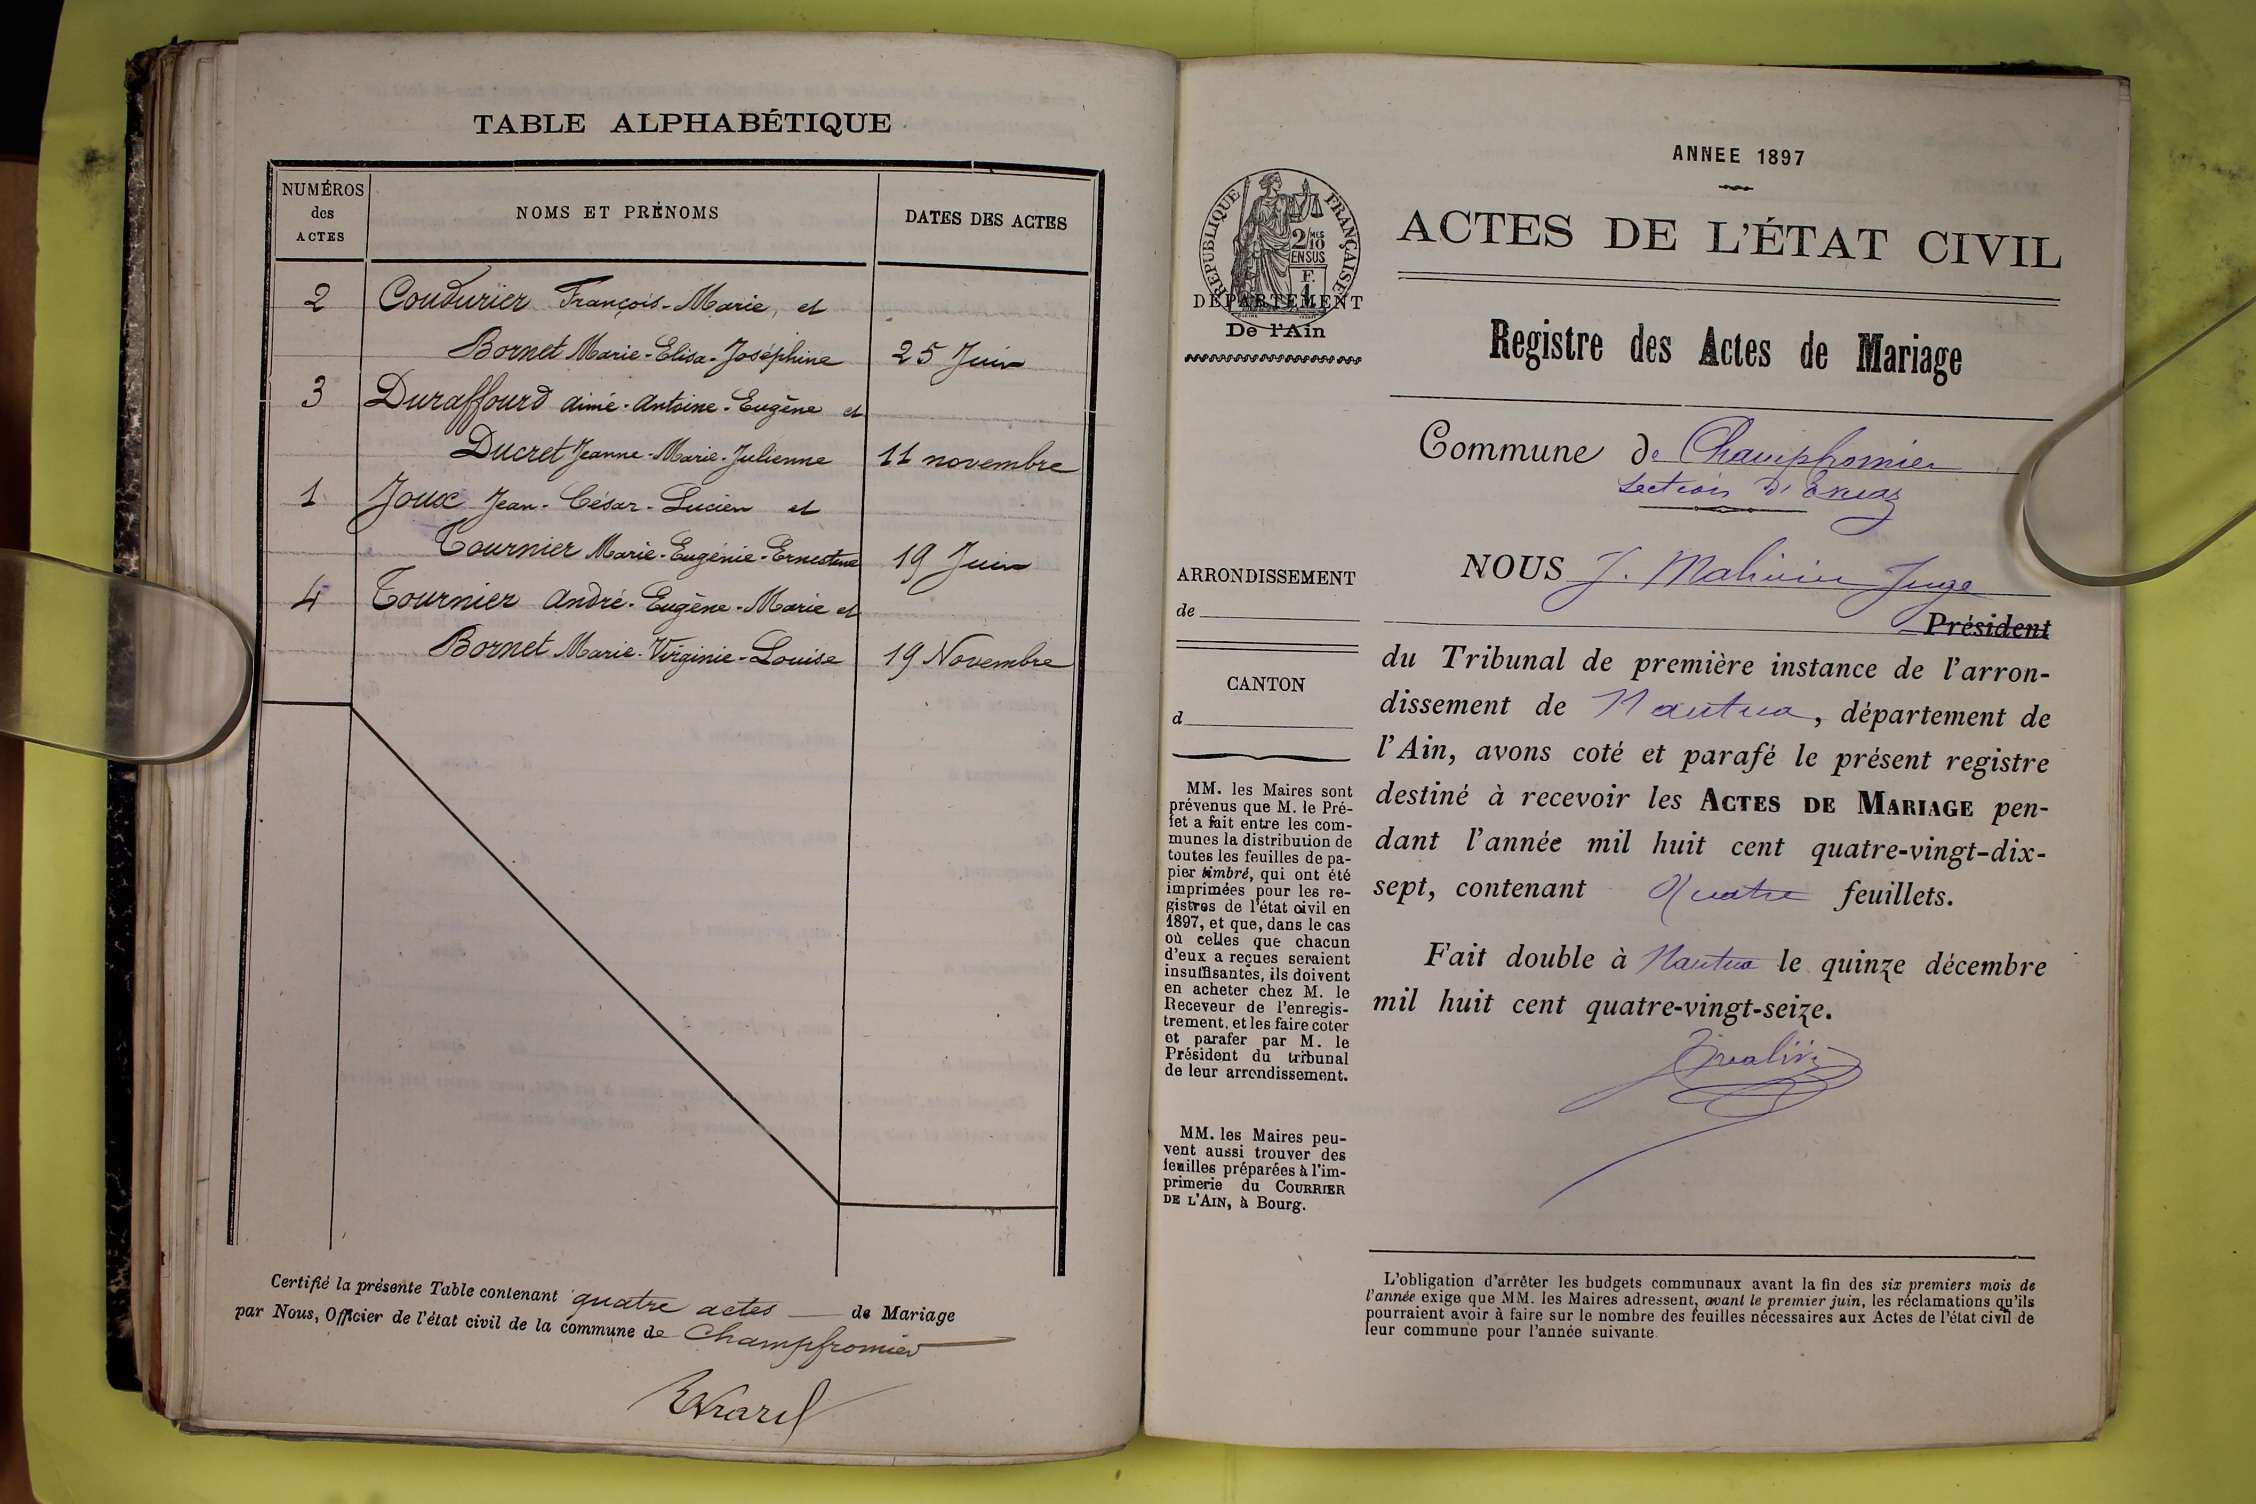 TABLE ALPHABÉTIQUE
NUMÉROS
des
ACTES
NOMS ET PRÉNOMS
DATES DES ACTES
2 Coudurier François-Marie, et
Bornet Marie-Elisa-Joséphine 25 Juin
3 Duraffourd Aimé-Antoine-Eugène et
Ducret Jeanne-Marie-Julienne 11 novembre
1 Joux Jean-César-Lucien et
Tournier Marie-Eugénie-Ernestine 19 Juin
4 Tournier André-Eugène-Marie et
Bornet Marie-Virginie-Louise 19 Novembre
Certifié la présente Table contenant quatre actes de Mariage
par Nous, Officier de l'état civil de la commune de Champfromier
ANNEE 1897
ACTES DE L'ÉTAT CIVIL
RÉPUBLIQUE FRANÇAISE
2/10 MES
EN SUS
F.
1
DÉPARTEMENT
De l'Ain
Registre des Actes de Mariage
Commune de Champfromier
Section d'
NOUS J. Juge
Président
ARRONDISSEMENT
de
CANTON
d
du Tribunal de première instance de l'arron-
dissement de Nantua, département de
l'Ain, avons coté et parafé le présent registre
destiné à recevoir les ACTES DE MARIAGE pen-
dant l'année mil huit cent quatre-vingt-dix-
sept, contenant Quatre feuillets.
Fait double à Nantua le quinze décembre
mil huit cent quatre-vingt-seize.
MM. les Maires sont
prévenus que M. le Pré-
fet a fait entre les com-
munes la distribution de
toutes les feuilles de pa-
pier timbré, qui ont été
imprimées pour les re-
gistres de l'état civil en
1897, et que, dans le cas
où celles que chacun
d'eux a reçues seraient
insuffisantes, ils doivent
en acheter chez M. le
Receveur de l'enregis-
trement, et les faire coter
et parafer par M. le
Président du tribunal
de leur arrondissement.
MM. les Maires peu-
vent aussi trouver des
feuilles préparées à l'im-
primerie du COURRIER
DE L'AIN, à Bourg.
L'obligation d'arrêter les budgets communaux avant la fin des six premiers mois de
l'année exige que MM. les Maires adressent, avant le premier juin, les réclamations qu'ils
pourraient avoir à faire sur le nombre des feuilles nécessaires aux Actes de l'état civil de
leur commune pour l'année suivante.